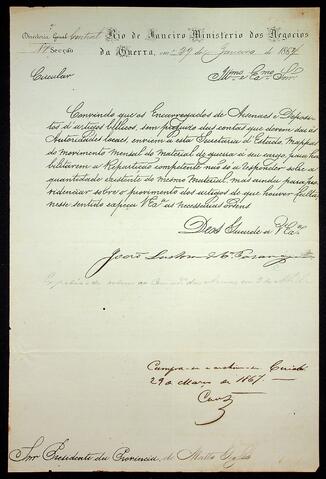 Directoria Geral Central Rio de Janeiro Ministerio dos Negocios
1ª Secção da Guerra, em 29 de Janeiro de 1867
Circular Illmo e Exmo Snr
Convindo que os Encarregados de Arsenaes e Deposi-
tos d'artigos bellicos, sem prejuizo das contas que devem dar ás
Autoridades locaes, enviem a esta Secretaria d'Estado Mappas
do movimento mensal do material de guerra a seu cargo para ha-
bilitarem a Repartição competente não só a responder sobre a
quantidade existente do mesmo material, mas ainda para pro-
videnciar sobre o provimento dos artigos de que houver falta,
nesse sentido expeça V Exª as necessarias ordens
Deos Guarde a V Exª
João Lustosa da Cª Paranaguá
Cumpra-se e archive-se Cuiabá
29 de Março de 1867.
Snr Presidente da Provincia de Matto Grosso